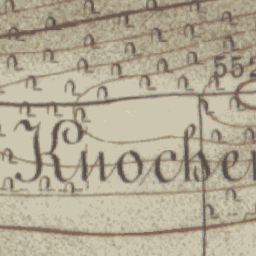 552
Knochen